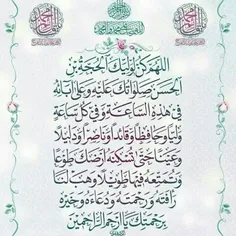 اَللّهُمَّ كُنْ لِوَلِيِّكَ الْحُجَّةِ بْنِ
الْحَسَنِ صَلَواتُكَ عَلَيْهِ وَعَلى آبائِهِ
في هذِهِ السّاعَةِ وَفي كُلِّ ساعَةٍ
وَلِيّاً وَحافِظاً وَقائِداً وَناصِراً وَدَليلاً
وَعَيْناً حَتّى تُسْكِنَهُ أَرْضَكَ طَوْعاً
وَتُمَتِّعَهُ فيها طَويلاً وَهَبْ لَنا
رَأْفَتَهُ وَرَحْمَتَهُ وَدُعاءَهُ وَخَيْرَهُ
بِرَحْمَتِكَ يا أَرْحَمَ الرّاحِمينَ